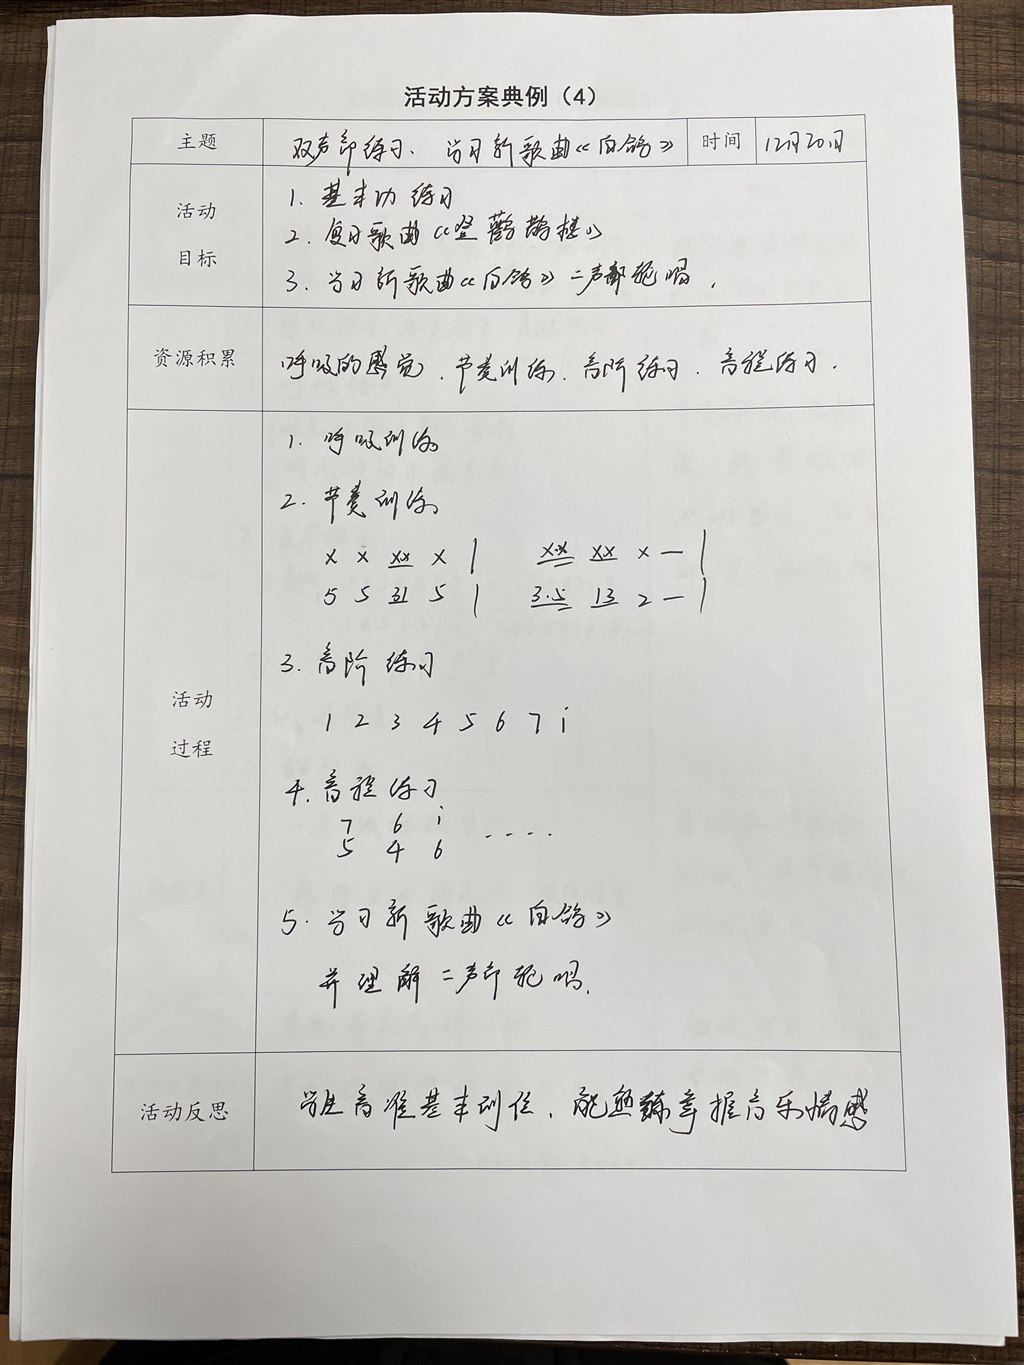 活动方案典例（4）
主题 双声部练习、学习新歌曲《白鸽》 时间 12月20日
活动目标
1. 基本功练习
2. 复习歌曲《登鹳鹊楼》
3. 学习新歌曲《白鸽》二声部轮唱.
资源积累 呼吸的感觉、节奏训练、音阶练习、音程练习.
活动过程
1. 呼吸训练
2. 节奏训练
X X XX X | X·X XX X — |
5 5 31 5 | 3·5 13 2 — |
3. 音阶练习
1 2 3 4 5 6 7 i
4. 音程练习
7 6 i
5 4 6 ····
5. 学习新歌曲《白鸽》
并理解二声部轮唱.
活动反思 学生音准基本到位、能熟练掌握音乐情感